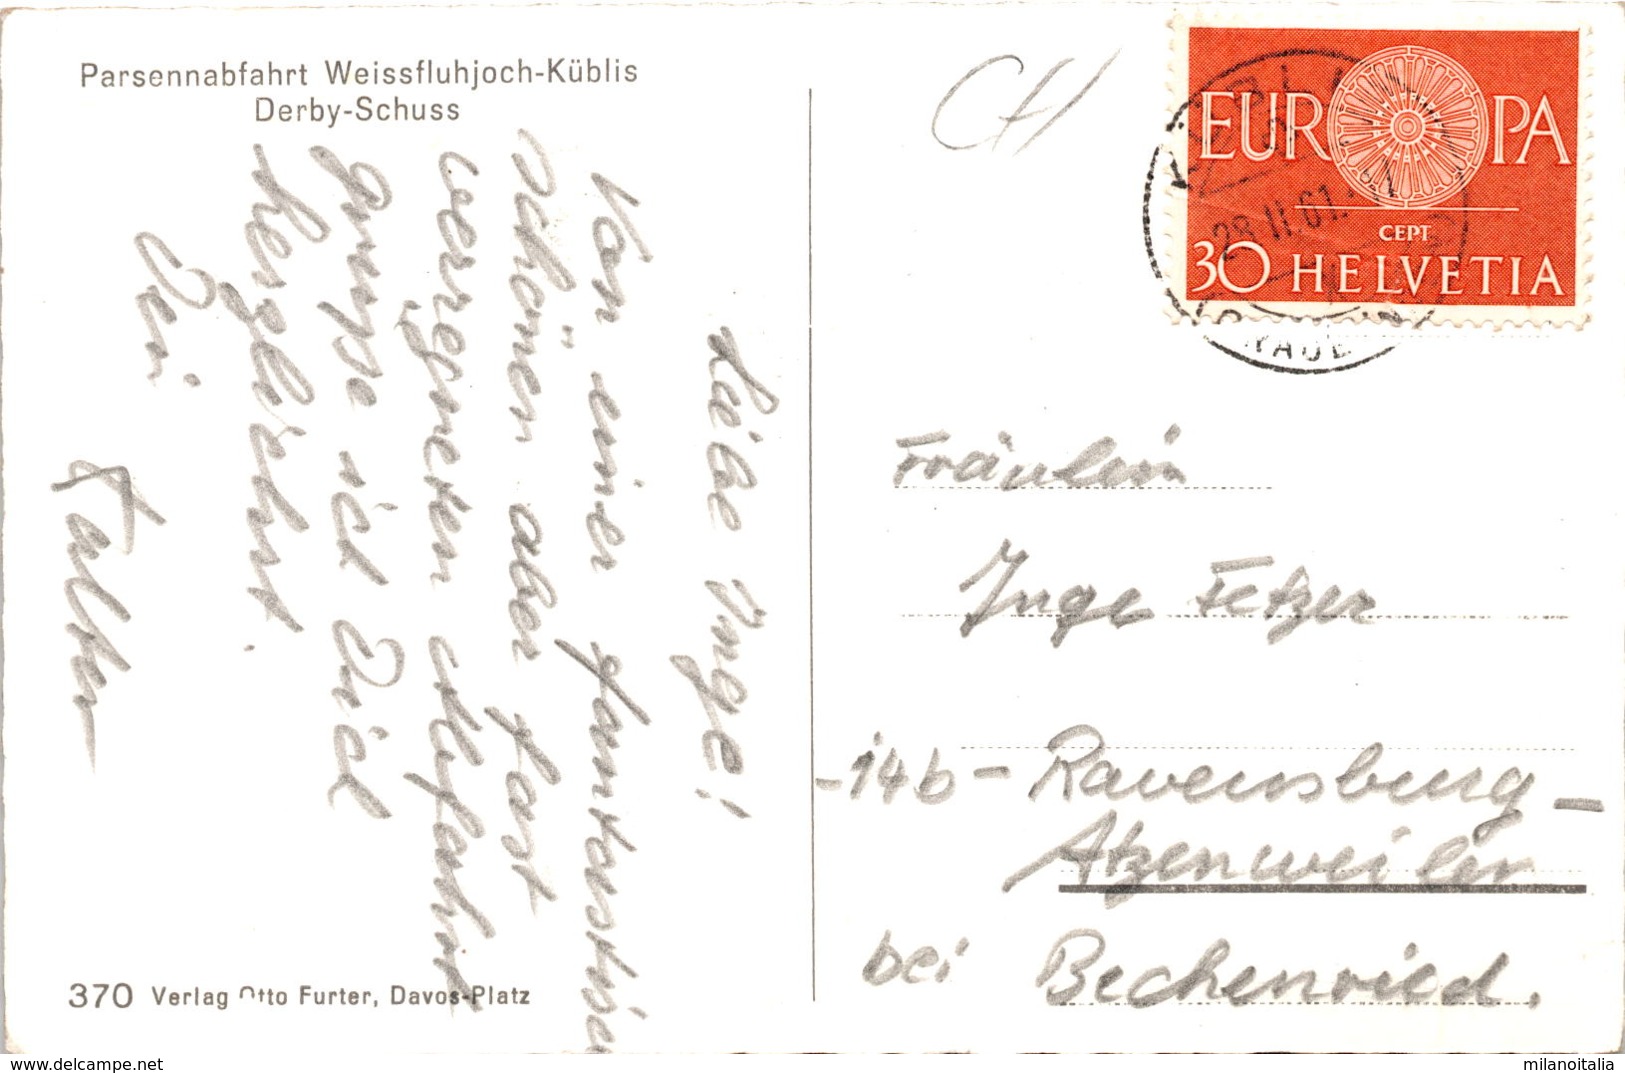 Parsennabfahrt Weissfluhjoch-Küblis
Derby-Schuss
Liebe Inge!
Von einer fantastisch
schönen aber fast
verregneten Abfahrt
grüße ich Dich
herzlichst.
Dein
370 Verlag Otto Furter, Davos-Platz
CH
EUROPA
CEPT
30 HELVETIA
28.II.61.
Fräulein
Inge Fetzer
-14b- Ravensburg-
Atzenweiler
bei Bechenried.
www.delcampe.net
milanoitalia